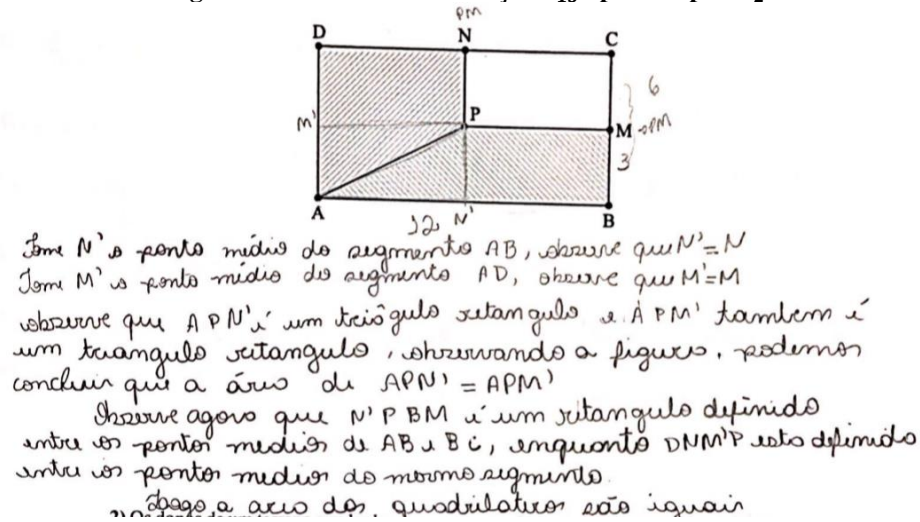 PM
D N C
M' P M → PM
6
3
A 12 N' B
Tome N' o ponto médio do segmento AB, observe que N' = N
Tome M' o ponto médio do segmento AD, observe que M' = M
observe que APN' é um triôgulo retangulo e APM' tambem é
um truangulo retangulo, observando a figura, podemos
concluir que a área de APN' = APM'
Observe agora que N'PBM é um retangulo definido
entre os pontos medios de AB e BC, enquanto DNM'P esta definido
entre os pontos medios do mesmo segmento.
Logo a area dos quadrilateros são iguais